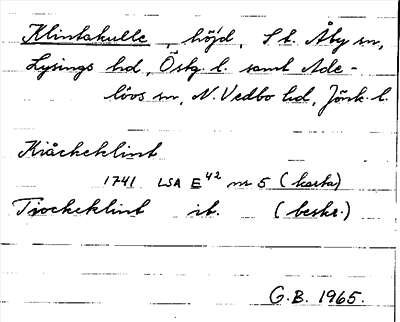 Klintakulle, höjd, St. Åby sn,
Lysings hd, Östg. l. samt Ade-
lövs sn, N. Vedbo hd, Jönk. l.
Kiåckeklint
1741 LSA E42 nr 5 (karta)
Tiockeklint ib. (beskr.)
G.B. 1965.